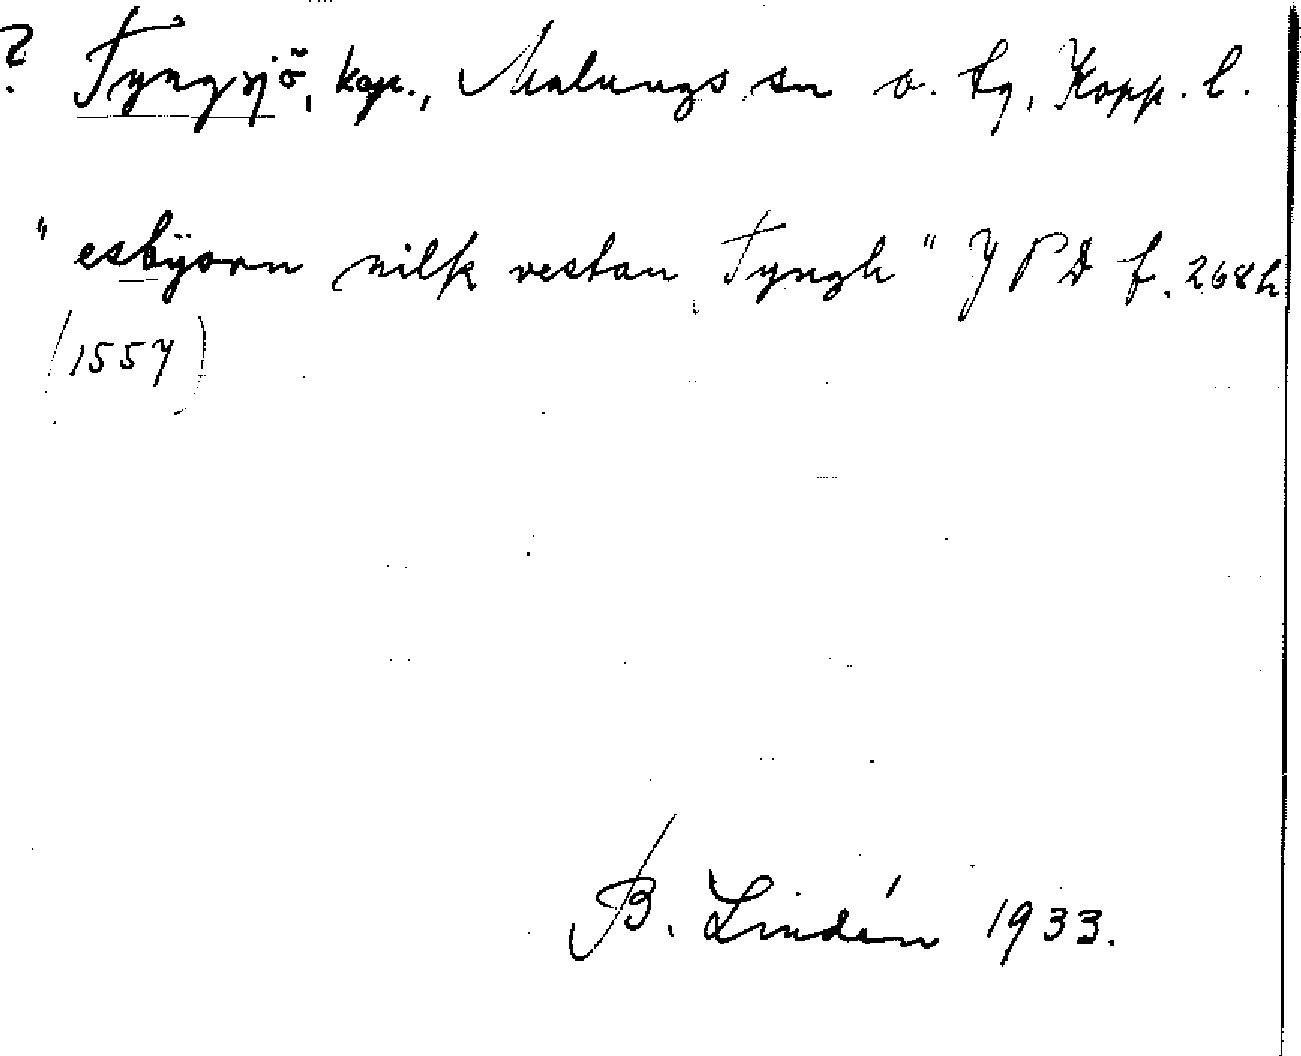 ? Tyngsjö, kap., Malungs sn o. tg, Kopp. l.
" esbÿorn nilsk vestan Tyngh" JPD f. 268b
(1557)
B. Lindén 1933.